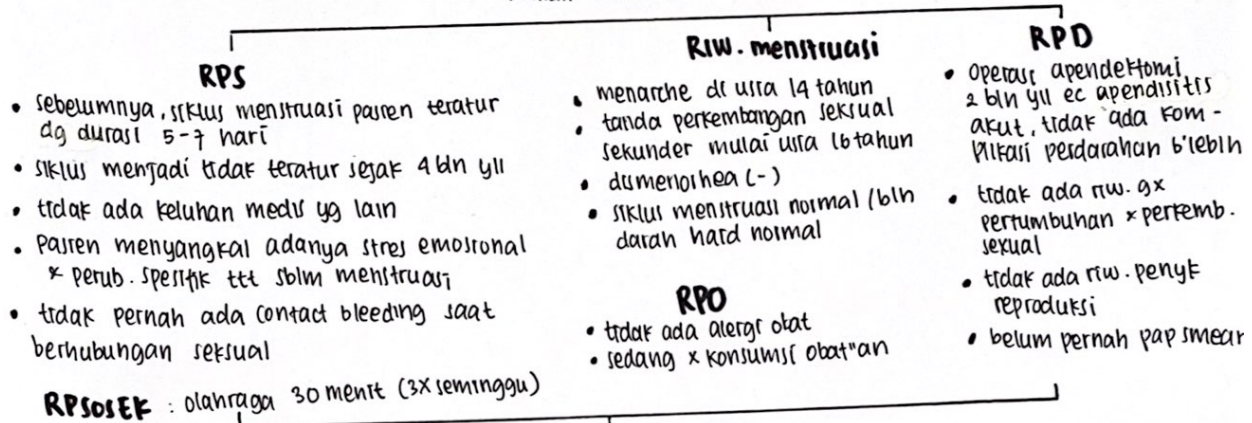 RPS
• sebelumnya, siklus menstruasi pasien teratur
dg durasi 5-7 hari
• siklus menjadi tidak teratur sejak 4 bln yll
• tidak ada keluhan medis yg lain
• Pasien menyangkal adanya stres emosional
& perub. spesifik ttt sblm menstruasi
• tidak pernah ada contact bleeding saat
berhubungan seksual
RPSOSEK : olahraga 30 menit (3x seminggu)
Riw. menstruasi
• menarche di usia 14 tahun
• tanda perkembangan seksual
sekunder mulai usia 16 tahun
• dismenorhea (-)
• siklus menstruasi normal /bln
darah haid normal
RPO
• tidak ada alergi obat
• sedang x konsumsi obat"an
RPD
• Operasi apendektomi
2 bln yll ec apendisitis
akut, tidak ada kom-
plikasi perdarahan b'lebih
• tidak ada riw. gx
pertumbuhan & perkemb.
sexual
• tidak ada riw. penyk
reproduksi
• belum pernah pap smear